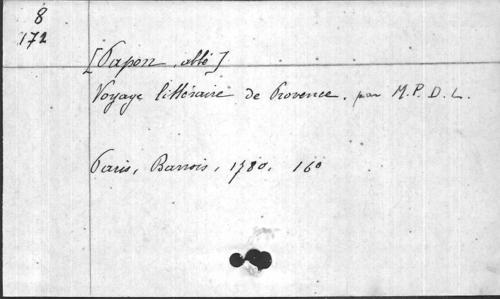 8
172
[Papon, abbé]
Voyage littéraire de Provence. par M.P.D.L.
Paris, Barrois, 1780, 16º